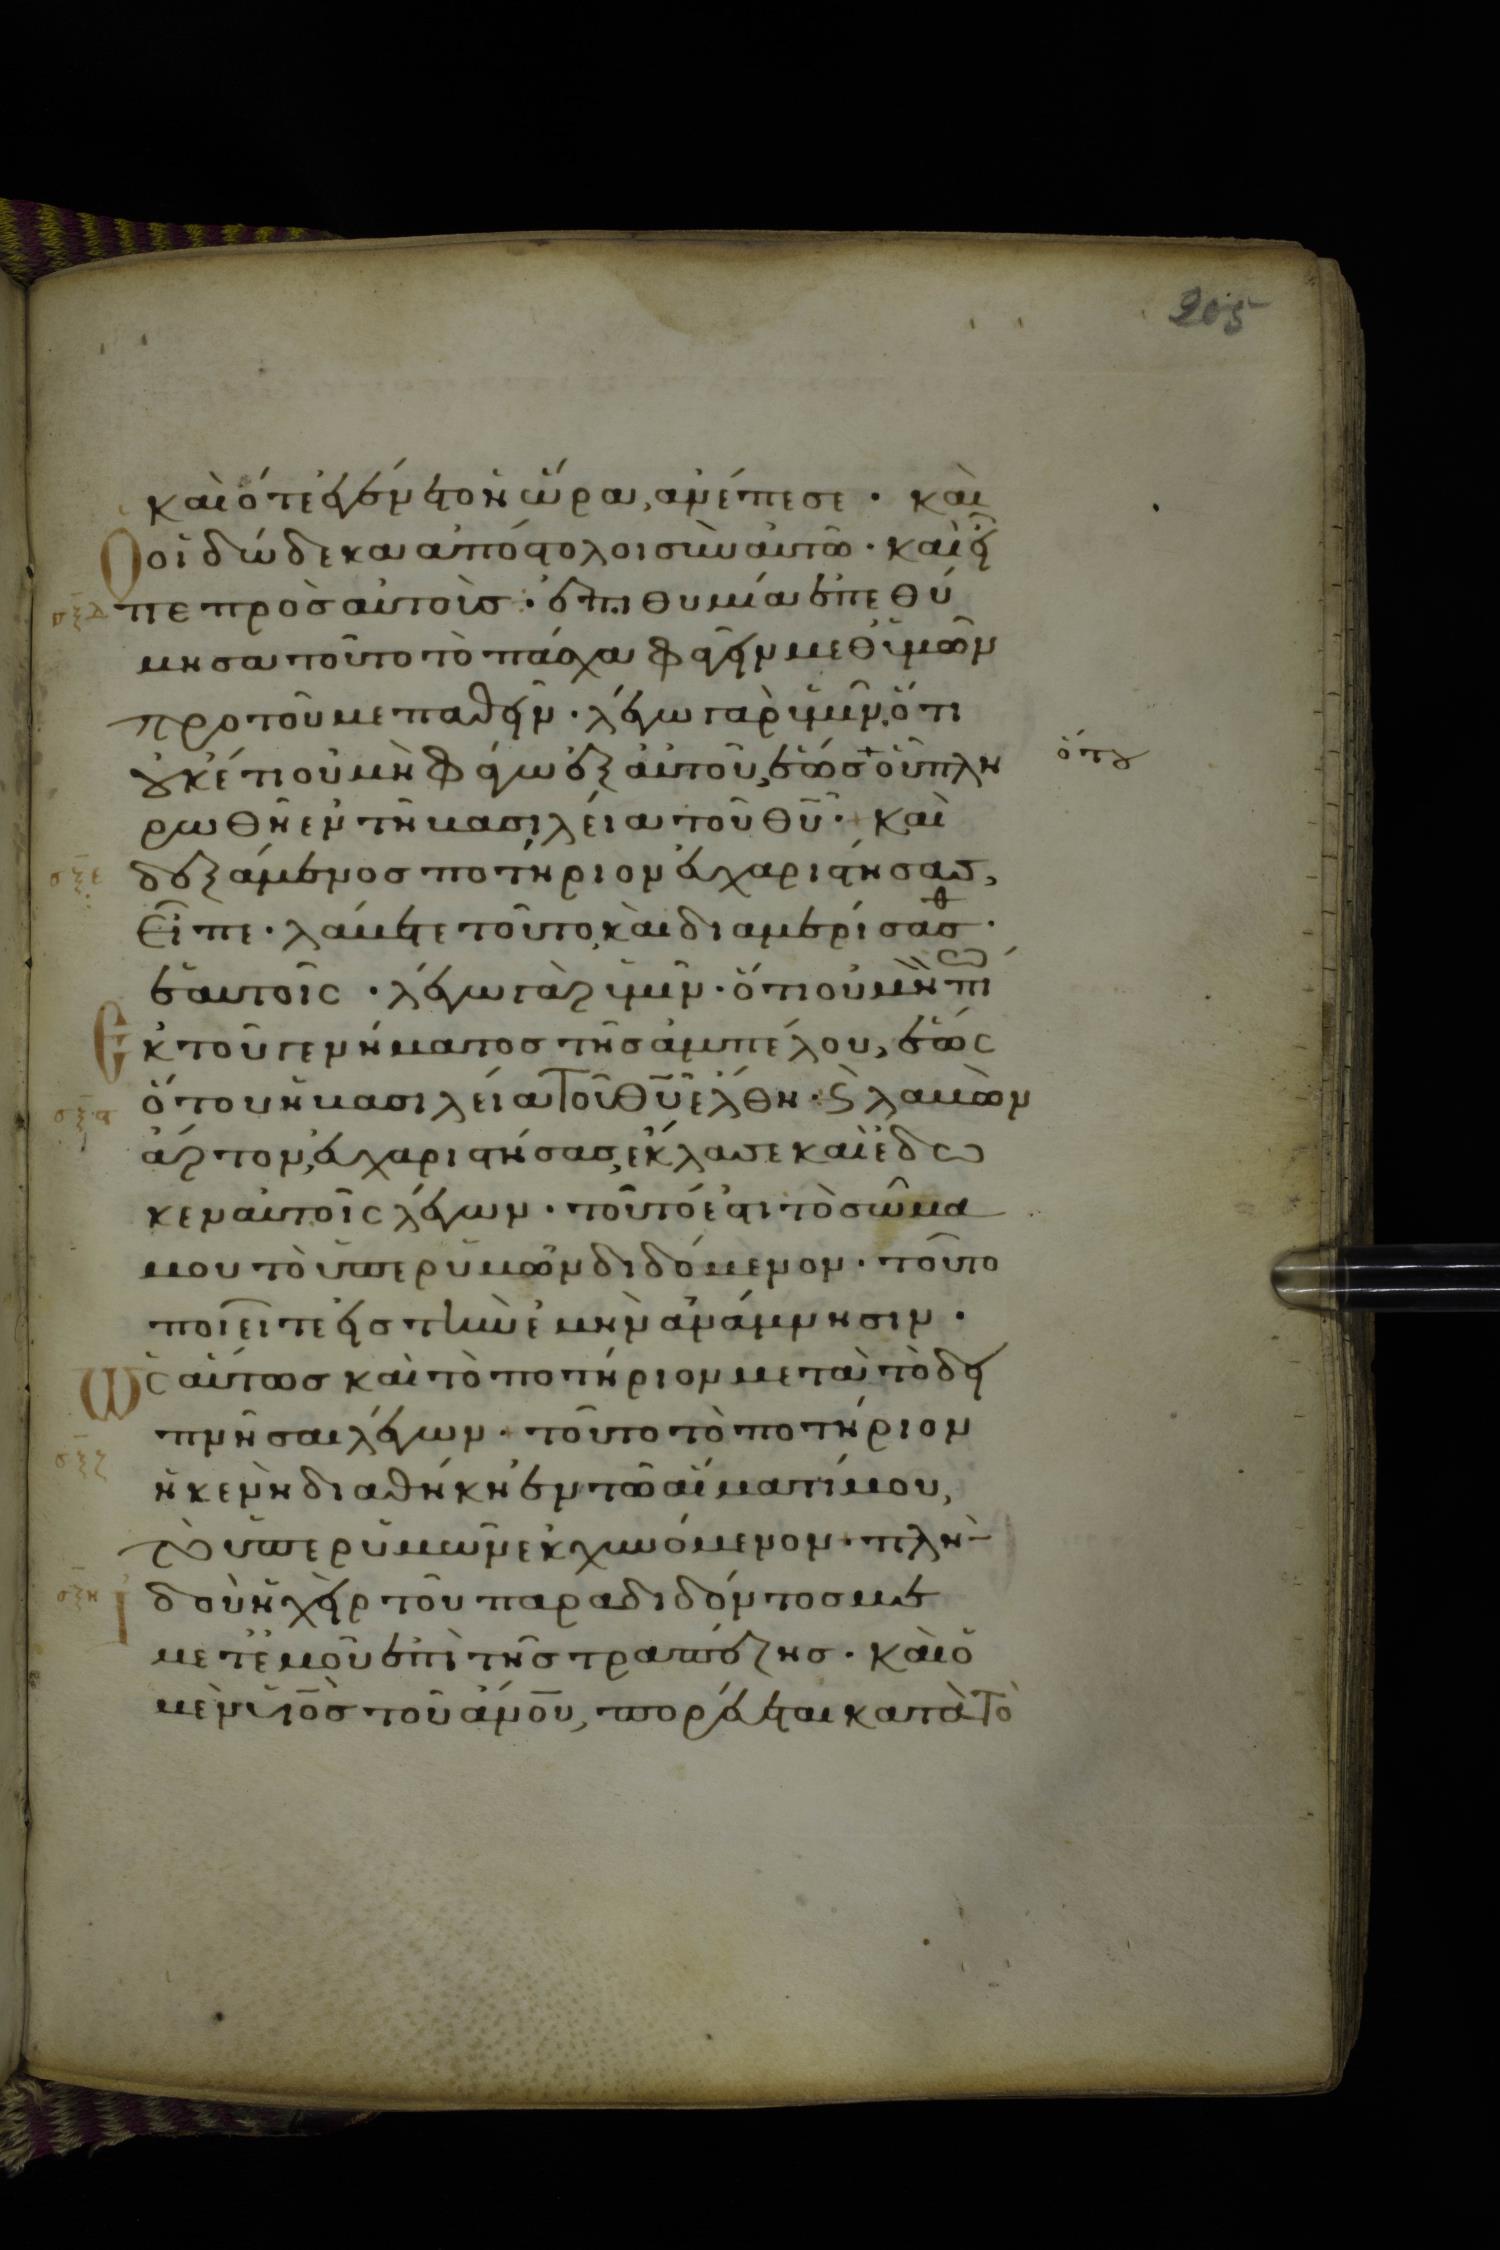 205
καὶ ὅτε ἐγένετο ἡ ὥρα, ἀνέπεσε · καὶ
οἱ δώδεκα ἀπόστολοι σὺν αὐτῶ · καὶ εἶ
σξδ πε πρὸσ αὐτοὺσ · ἐπιθυμία ἐπεθύ
μησα τοῦτο τὸ πάσχα φαγεῖν μεθ ὑμῶν
προ τοῦ με παθεῖν · λέγω γὰρ ὑμῖν, ὅτι
οὐκέτι οὐ μὴ φάγω ἐξ αὐτοῦ, ἕωσ οὗ πλη ὅτου
ρωθῆ εν τῆ βασιλεία τοῦ θῦ · καὶ
σξε δεξάμενοσ ποτήριον εὐχαριστήσασ,
εἶπε · λάβετε τοῦτο, καὶ διαμερίσασθ ·
ἑαυτοῖς · λέγω γὰρ ὑμῖν · ὅτι οὐ μὴ πίω
Ἐκ τοῦ γενήματοσ τῆσ ἀμπέλου, ἕως
σξϛ ὅτου ἡ βασιλεία τοῦ θῦ ἔλθη · ϗ λαβὼν
ἄρτον, εὐχαριστήσασ, ἔκλασε καὶ ἔδω
κεν αὐτοῖς λέγων · τοῦτό ἐστι τὸ σῶμα
μου τὸ ὑπερ ὑμῶν διδόμενον · τοῦτο
ποιεῖτε εἰσ τὴν ἐμὴν ἀνάμνησιν ·
Ὡς αύτωσ καὶ τὸ ποτήριον μετὰ τὸ δει
σξζ πνῆσαι λέγων · τοῦτο τὸ ποτήριον
ἡ κενὴ διαθήκη ἐν τῶ αἵματί μου,
τὸ ὑπερ ὑμῶν εκχυνόμενον · πλὴ-
σξη ἰδοὺ ἡ χεὶρ τοῦ παραδιδόντοσ με
μετ ἐμοῦ ἐπὶ τῆσ τραπέζησ · καὶ ὁ
μὲν ὑῖὸσ τοῦ ἀνοῦ, πορεύεται κατὰ τὸ